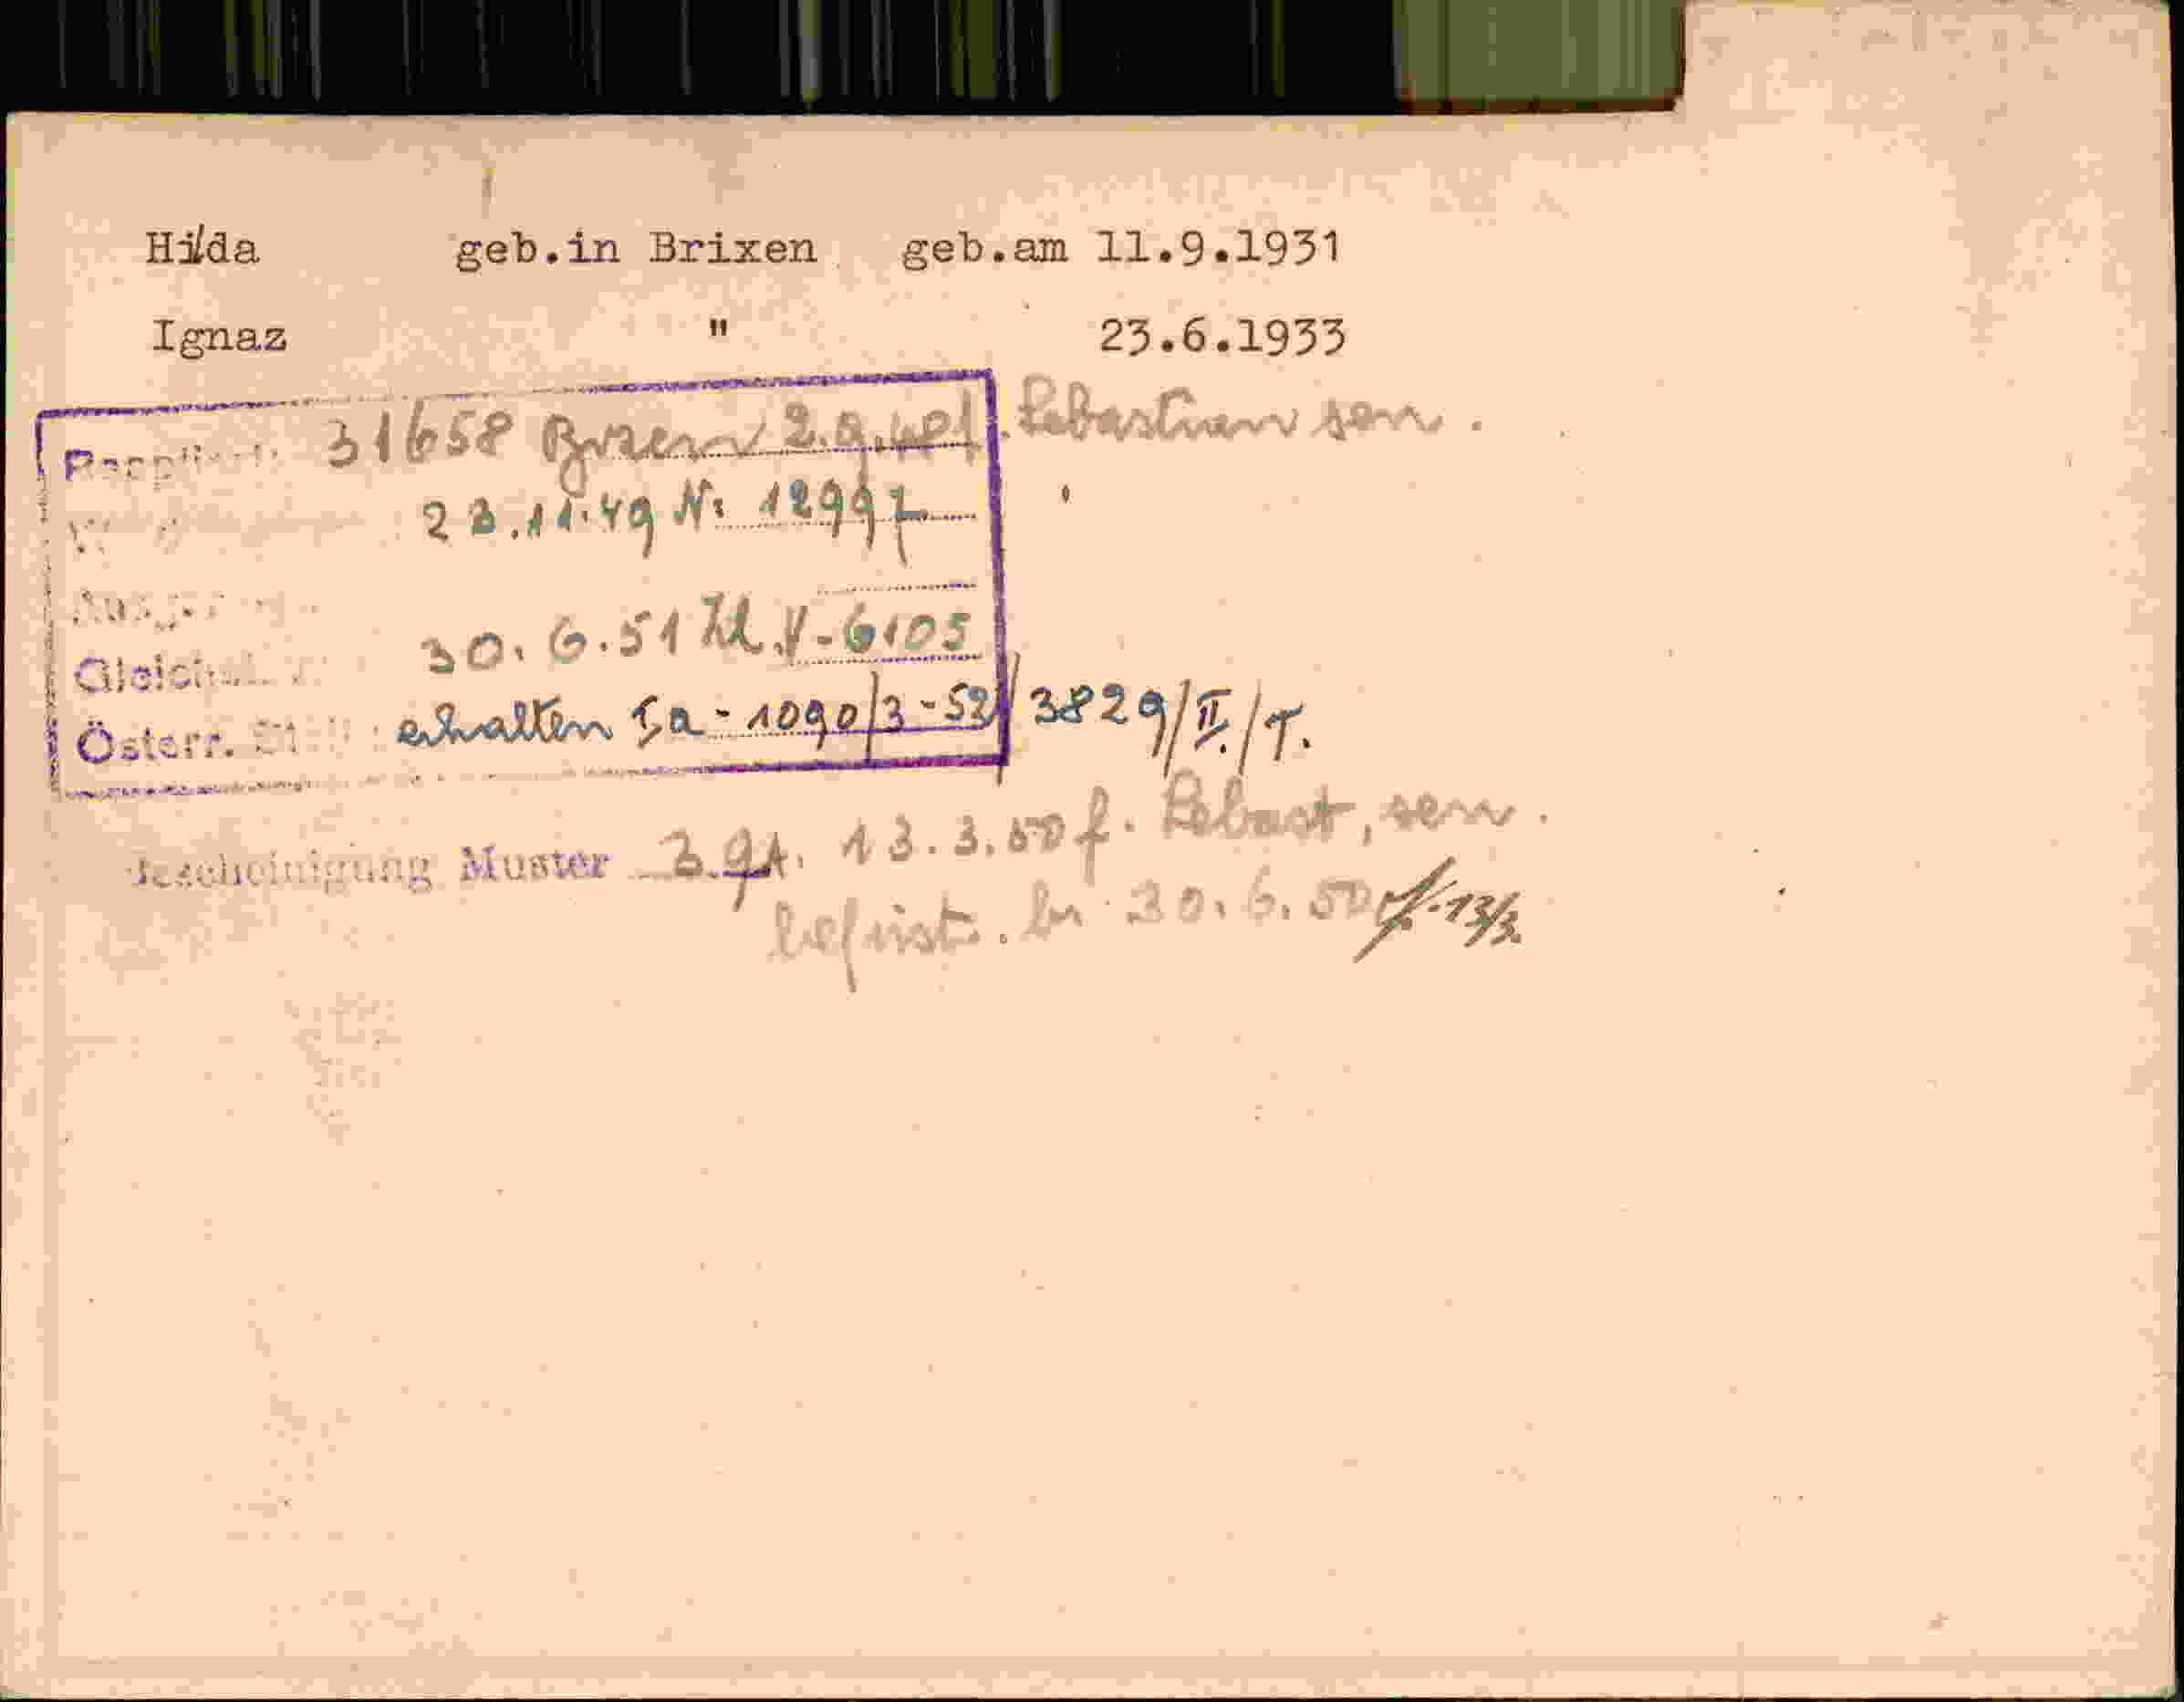 Hilda geb.in Brixen geb.am 11.9.1931
Ignaz " 23.6.1933
31658 Brixen 2.9.48 f. Sebastian sen.
23.11.49 Nr 12997
30.6.51 Zl. V-6105
Österr. erhalten Ia-1090/3-52/3829/II./T.
Bescheinigung Muster 3.gA. 13.3.50 f. Sebast, sen.
befrist. bis 30.6.50 13/3.